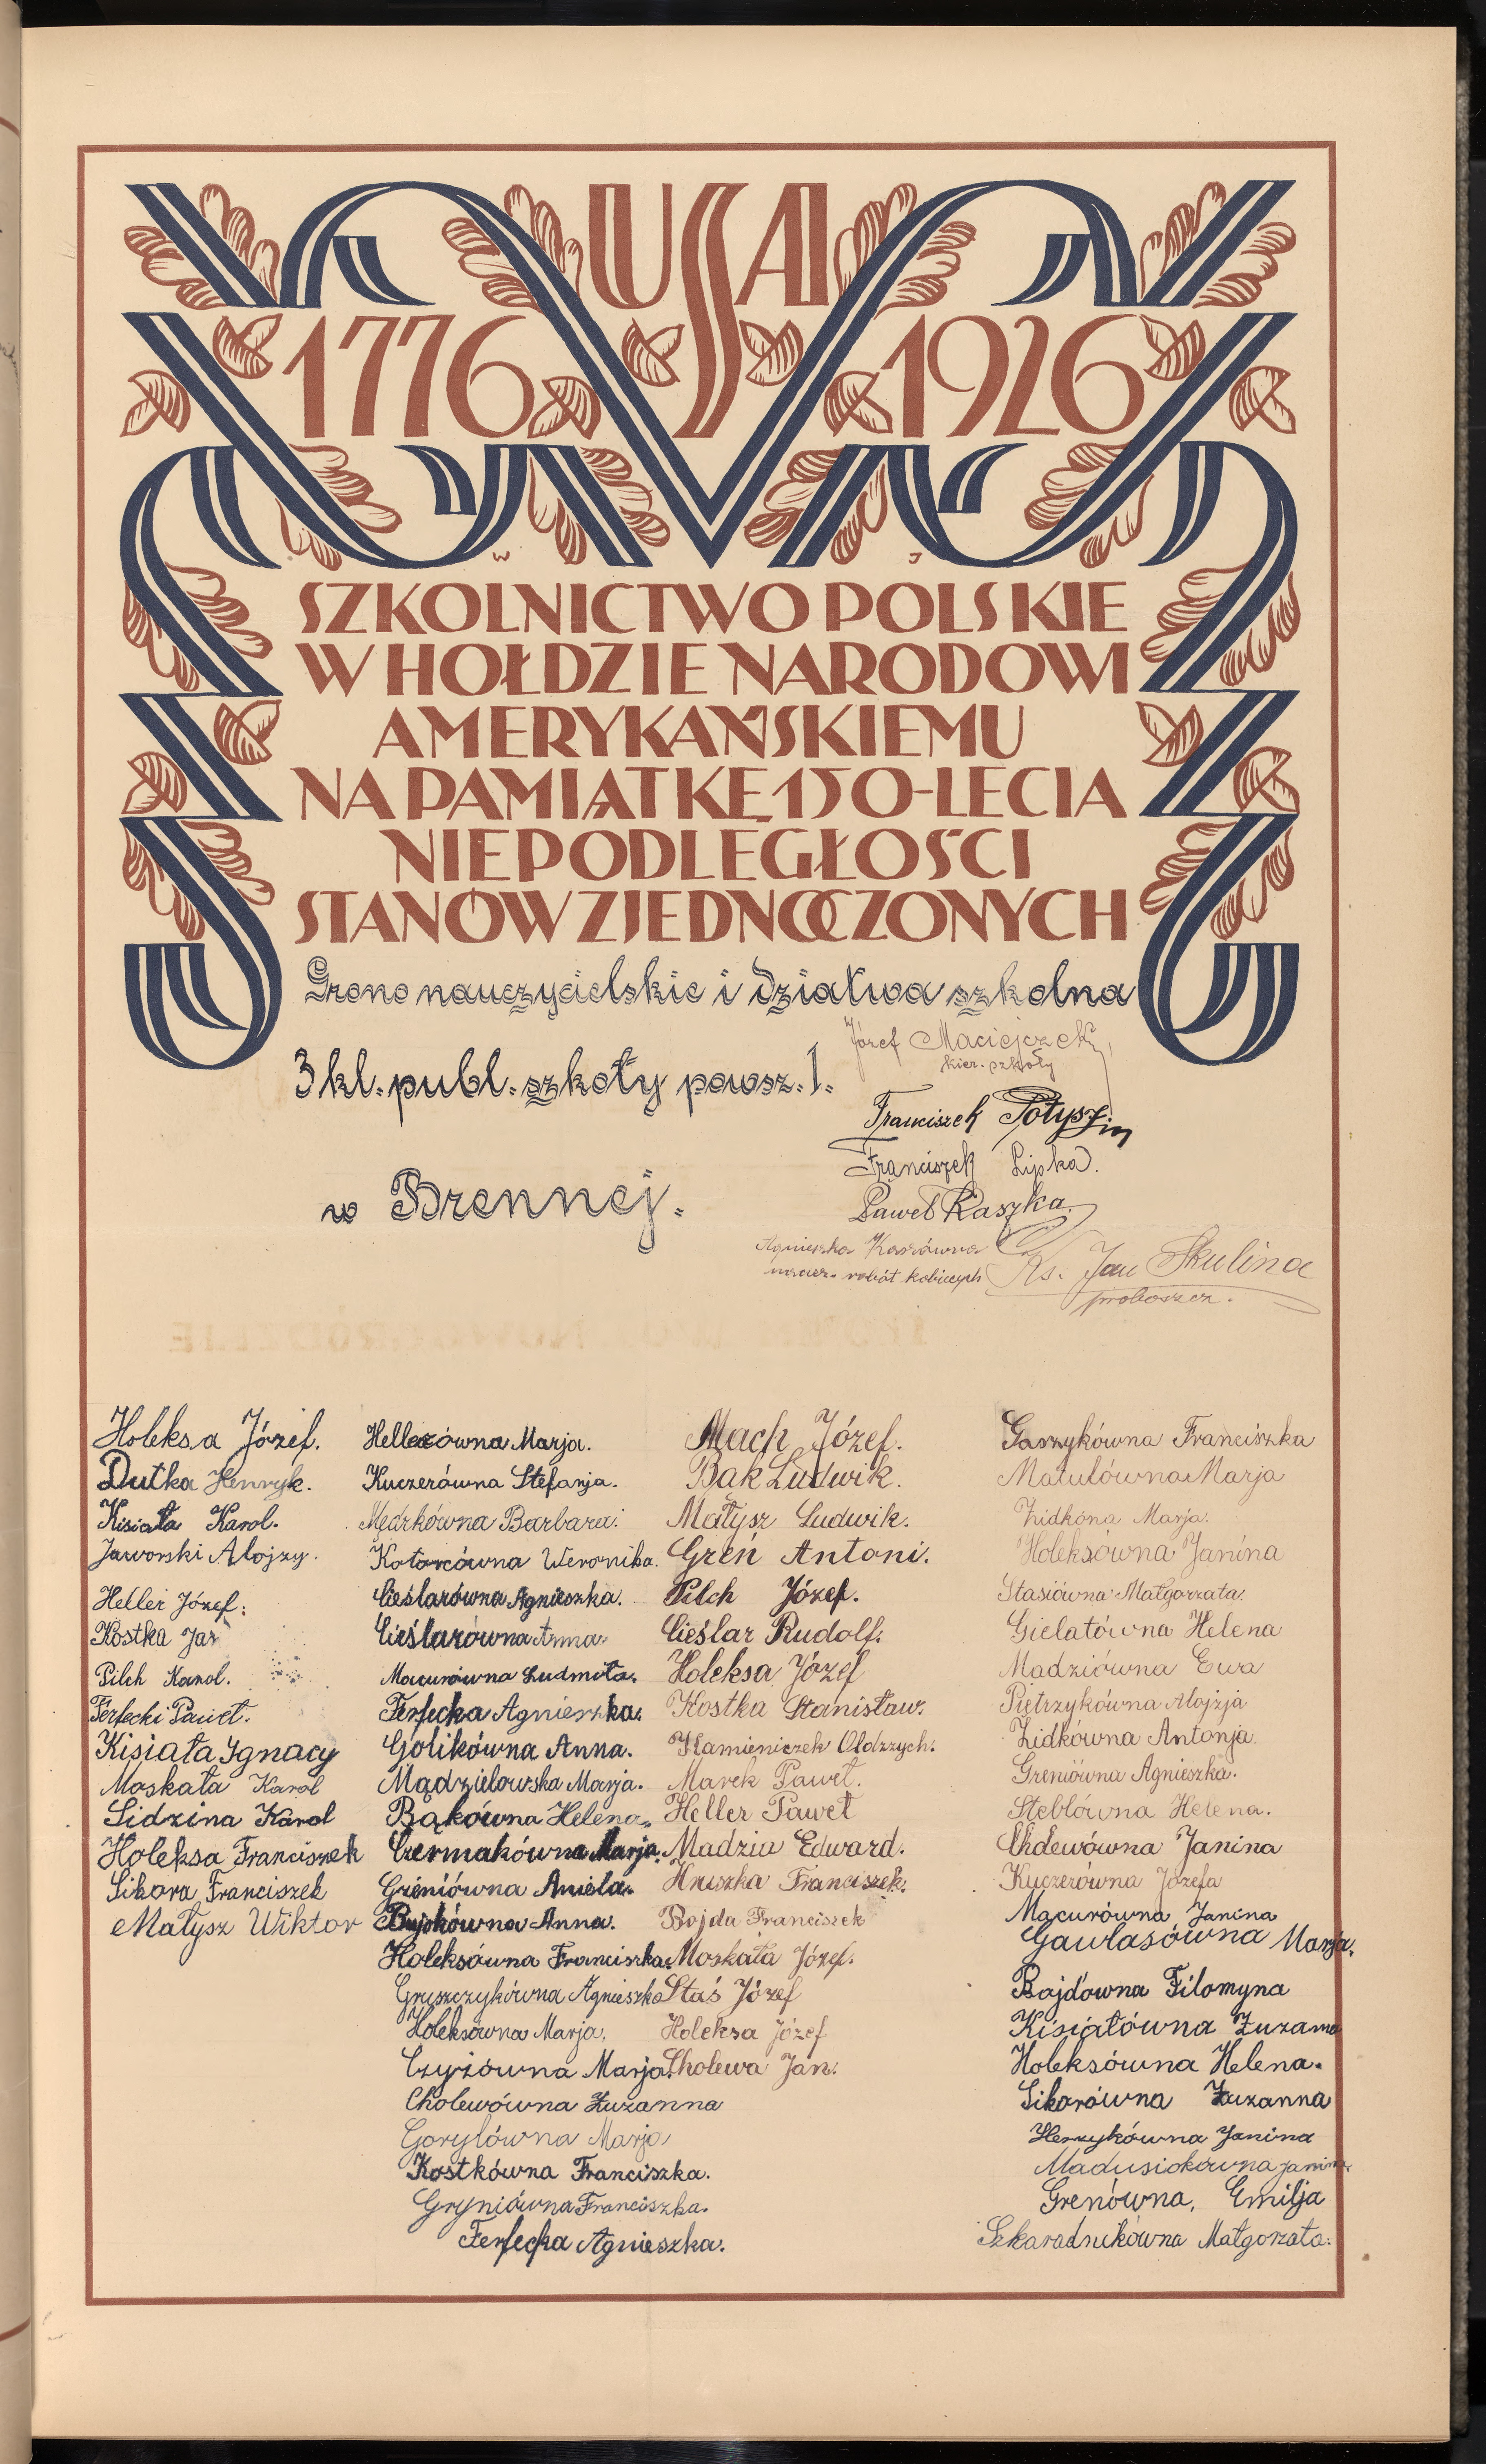 USA
1776 1926
W J
SZKOLNICTWO POLSKIE
W HOŁDZIE NARODOWI
AMERYKAŃSKIEMU
NA PAMIĄTKĘ 150-LECIA
NIEPODLEGŁOŚCI
STANÓW ZJEDNOCZONYCH
Grono nauczycielskie i dziatwa szkolna
3 kl. publ. szkoły powsz. 1.
w Brennej.
Józef Maciejczek,
kier. szkoły
Franciszek
Franciszek Lipka.
Paweł Raszka.
Agnieszka
naucz. robót kobiecych
Ks. Jan Skulina
proboszcz.
Holeksa Józef.
Dutka Henryk.
Kisiała Karol.
Jaworski Alojzy.
Heller Józef.
Kostka Jan
Pilch Karol.
Ferfecki Paweł.
Kisiała Ignacy
Moskała Karol
Sidzina Karol
Holeksa Franciszek
Sikora Franciszek
Małysz Wiktor
Hellerówna Marja.
Kuczerówna Stefanja.
Mędrkówna Barbara.
Kotarcówna Weronika.
Cieślarówna Agnieszka.
Cieślarówna Anna.
Macurówna Ludmiła.
Ferfecka Agnieszka.
Golikówna Anna.
Mądzielowska Marja.
Bąkówna Helena.
Czermakówna Marja.
Greniówna Aniela.
Bujokówna Anna.
Holeksówna Franciszka.
Gruszczykówna Agnieszka
Holeksówna Marja.
Czyżówna Marja.
Cholewówna Zuzanna
Gorylówna Marja
Kostkówna Franciszka.
Gryniówna Franciszka.
Ferfecka Agnieszka.
Mach Józef.
Bąk Ludwik.
Małysz Ludwik.
Greń Antoni.
Pilch Józef.
Cieślar Rudolf.
Holeksa Józef
Kostka Stanisław.
Kamieniczek Oldrzych.
Marek Paweł.
Heller Paweł
Madzia Edward.
Hruszka Franciszek.
Bojda Franciszek
Moskała Józef.
Staś Józef
Holeksa Józef
Cholewa Jan.
Gaszykówna Franciszka
Matulówna Marja
Zidkóna Marja.
Holeksówna Janina
Stasiówna Małgorzata.
Gielatówna Helena
Madziówna Ewa
Pietrzykówna Alojzja
Zidkówna Antonja.
Greniówna Agnieszka.
Steblówna Helena.
Chdewówna Janina
Kuczerówna Józefa
Macurówna Janina
Gawlasówna Marja.
Bojdówna Filomyna
Kisiałówna Zuzanna
Holeksówna Helena.
Sikorówna Zuzanna
Herzykówna Janina
Madusiokówna Janina.
Grenówna, Emilja
Szkaradnikówna Małgorzata.